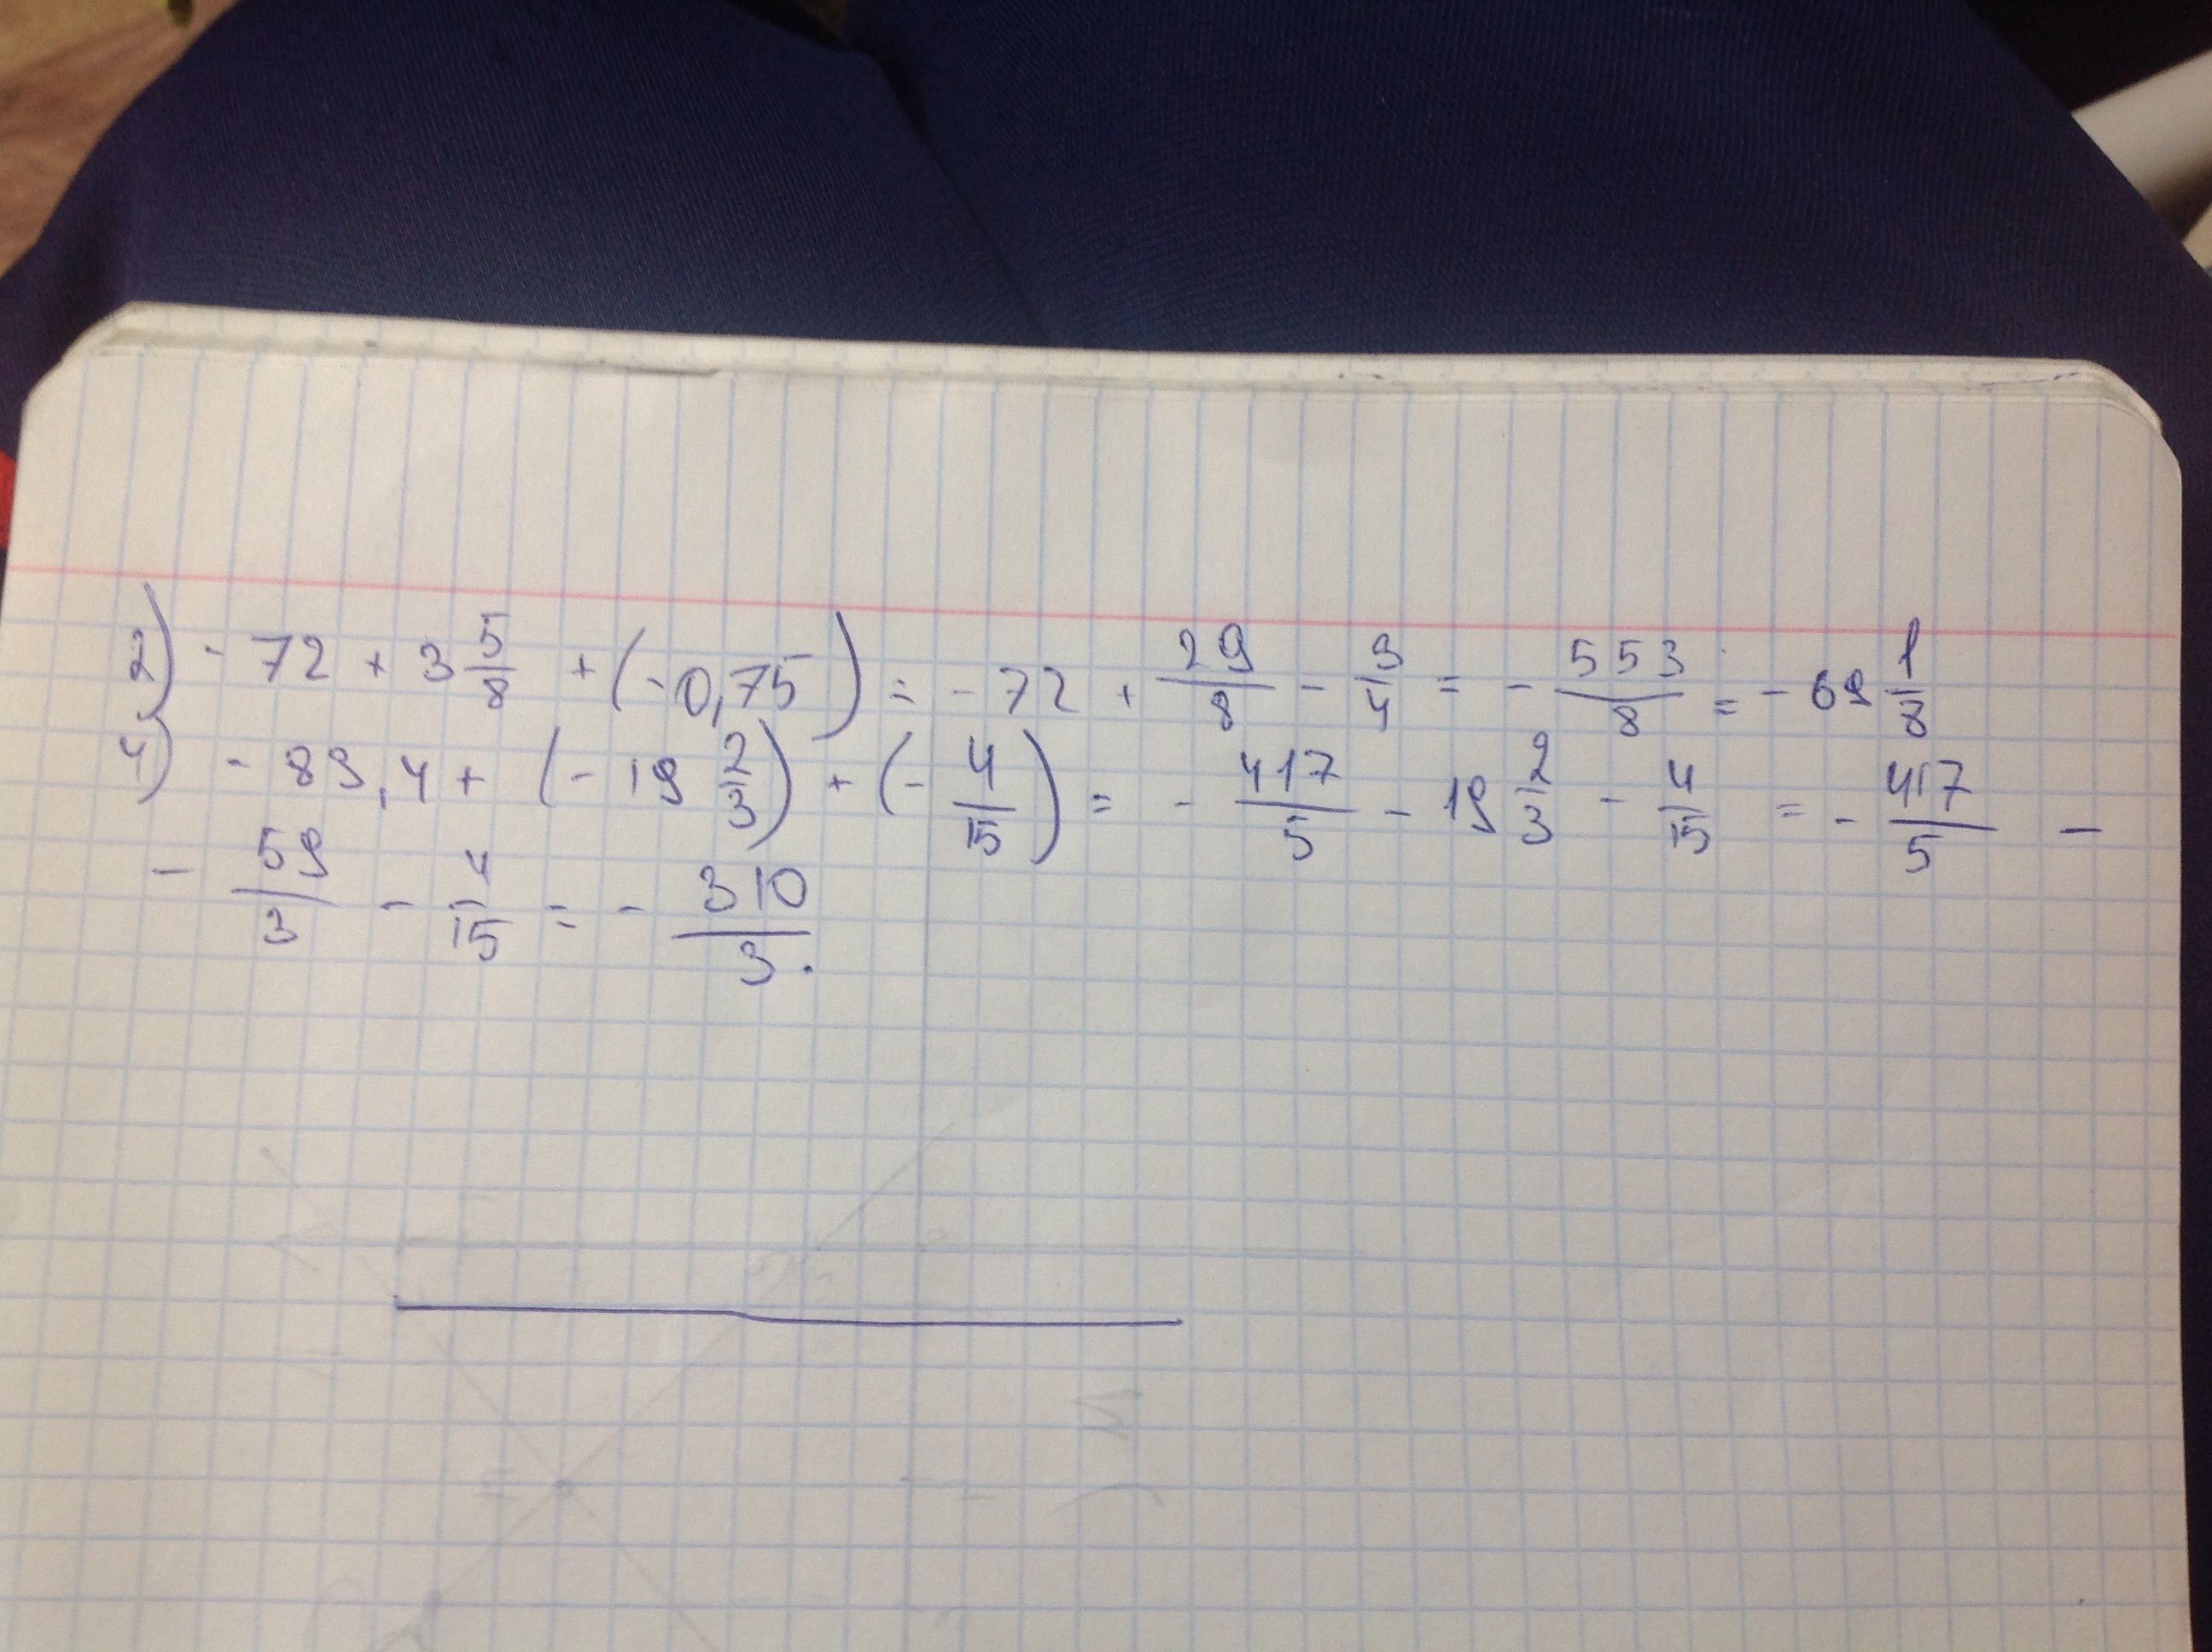 2) - 72 + 3 5/8 + (-0,75) = - 72 + 29/8 - 3/4 = - 553/8 = - 69 1/8
4) - 89,4 + (- 19 2/3) + (- 4/15) = - 417/5 - 19 2/3 - 4/15 = - 417/5 -
- 59/3 - 4/15 = - 310/3.